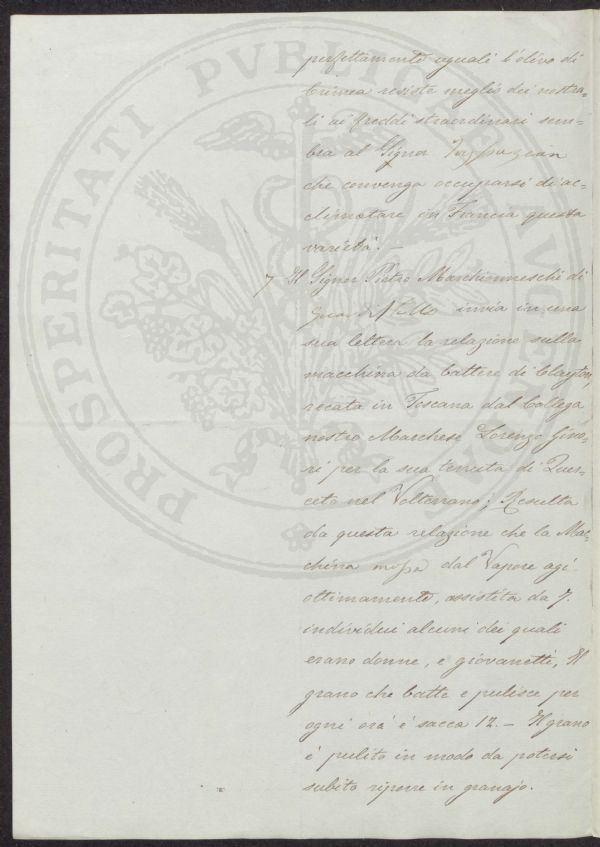 PROSPERITATI PVBLICAE AVGENDAE
perfettamente eguali l'olivo di
Crimea resiste meglio dei nostra-
li ai freddi straordinari sem-
bra al Signor
che convenga occuparsi di ac-
climatare in Francia questa
varietà. –
7 Il Signor Pietro Marchionneschi di
Guardistallo invia in una
sua lettera la relazione sulla
macchina da battere di Clayton,
recata in Toscana dal Collega
nostro Marchese Lorenzo Gino-
ri per la sua tenuta di Quer-
ceto nel Volterrano; Resulta
da questa relazione che la Mac-
china mossa dal Vapore agì
ottimamente, assistita da 7.
individui alcuni dei quali
erano donne, e giovanetti, Il
grano che batte e pulisce per
ogni ora è sacca 12. – Il grano
è pulito in modo da potersi
subito riporre in granajo.